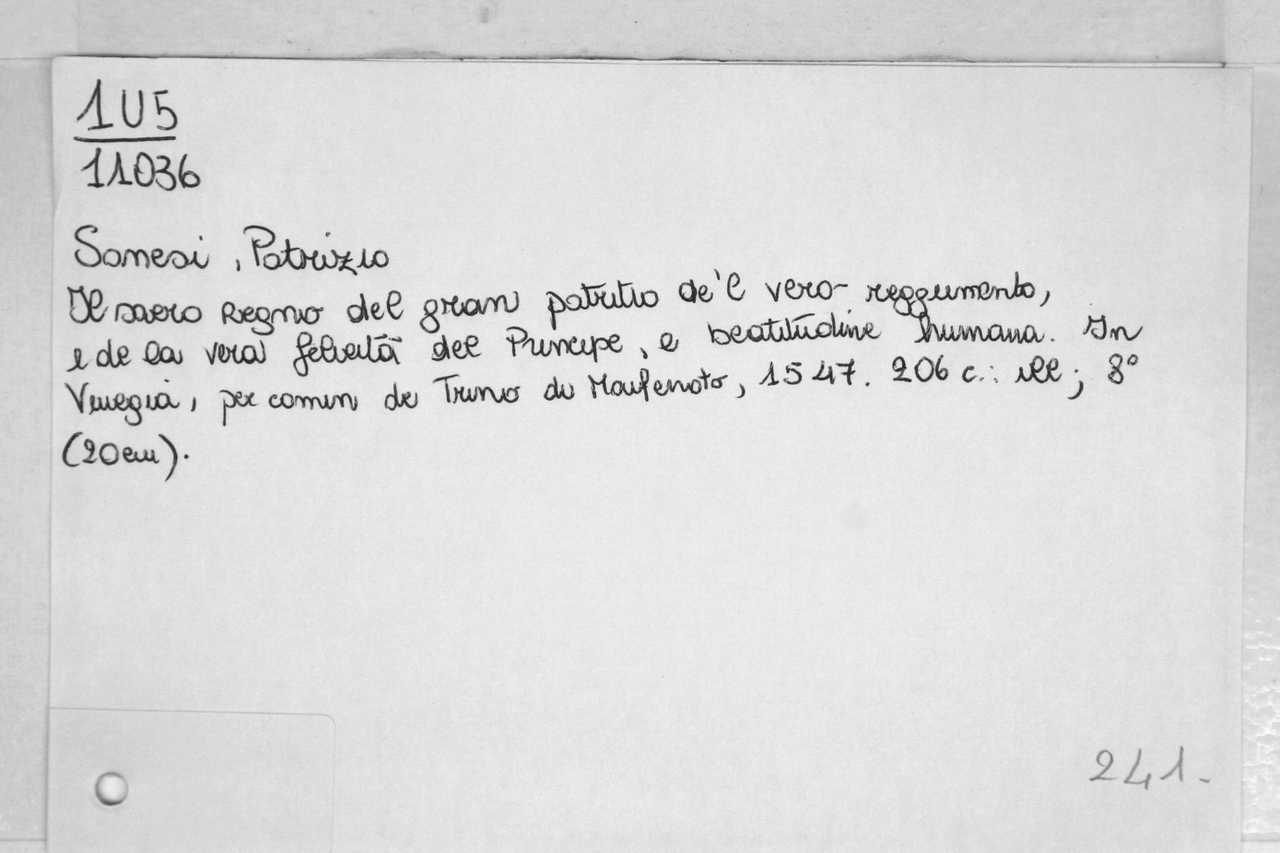 1U5
11036
Sanesi, Patrizio
Il sacro Regno del gran patritio de'l vero reggimento,
e de la vera felicità del Principe, e beatitudine humana. In
Vinegia, per comin de Trino di Monferrato, 1547. 206 c.: ill; 8°
(20cm).
241.